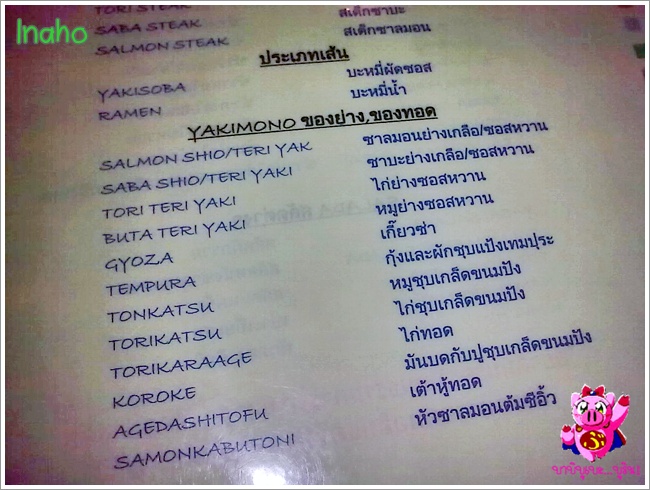 Inaho
TORI STEAK
SABA STEAK สเต็กซาบะ
SALMON STEAK สเต็กซาลมอน
ประเภทเส้น
YAKISOBA บะหมี่ผัดซอส
RAMEN บะหมี่น้ำ
YAKIMONO ของย่าง,ของทอด
SALMON SHIO/TERI YAK ซาลมอนย่างเกลือ/ซอสหวาน
SABA SHIO/TERI YAKI ซาบะย่างเกลือ/ซอสหวาน
TORI TERI YAKI ไก่ย่างซอสหวาน
BUTA TERI YAKI หมูย่างซอสหวาน
GYOZA เกี๊ยวซ่า
TEMPURA กุ้งและผักชุบแป้งเทมปุระ
TONKATSU หมูชุบเกล็ดขนมปัง
TORIKATSU ไก่ชุบเกล็ดขนมปัง
TORIKARAAGE ไก่ทอด
KOROKE มันบดกับปูชุบเกล็ดขนมปัง
AGEDASHITOFU เต้าหู้ทอด
SAMONKABUTONI หัวซาลมอนต้มซีอิ้ว